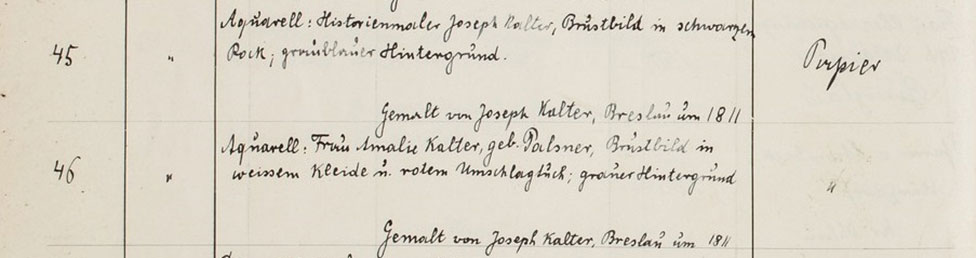 Aquarell: Historienmaler Joseph Kalter, Brustbild in schwarzem
45 " Rock; graublauer Hintergrund. Papier
Gemalt von Joseph Kalter, Breslau um 1811
Aquarell: Frau Amalie Kalter, geb. Palsner, Brustbild in
46 " weissem Kleide u. rotem Umschlagtuch; grauer Hintergrund "
Gemalt von Joseph Kalter, Breslau um 1811